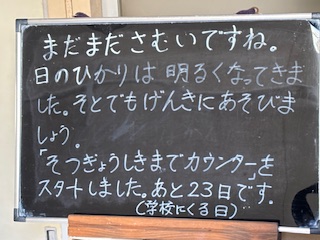 まだまださむいですね。
日のひかりは明るくなってきま
した。そとでもげんきにあそびま
しょう。
「そつぎょうしきまでカウンター」を
スタートしました。あと23日です。
(学校にくる日)